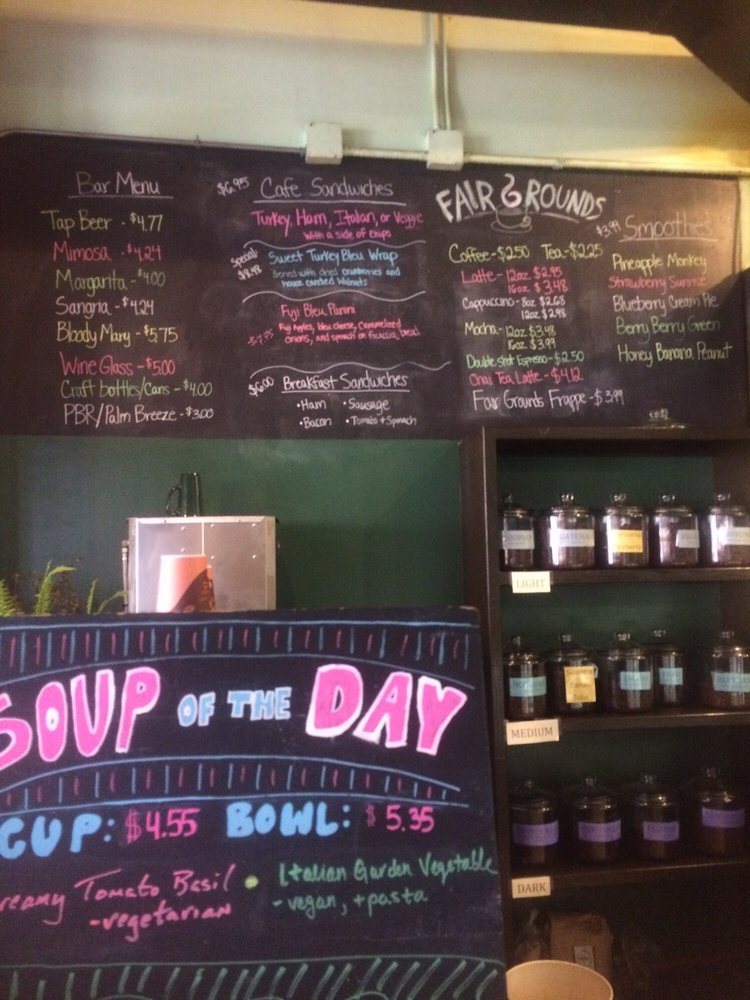 Bar Menu
Tap Beer - $4.77
Mimosa - $4.24
Margarita - $4.00
Sangria - $4.24
Bloody Mary - $5.75
Wine Glass - $5.00
Craft bottles/Cans - $4.00
PBR/Palm Breeze - $3.00
$6.95 Cafe Sandwiches
Turkey, Ham, Italian, or Veggie
with a side of chips
Special! $8.48
Sweet Turkey Bleu Wrap
Served with dried cranberries and
house candied walnuts
Fuji Bleu Panini
Fuji Apples, bleu cheese, caramelized
onions, and spinach on focaccia bread
$6.00 Breakfast Sandwiches
• Ham • Sausage
• Bacon • Tomato + Spinach
FAIR GROUNDS
Coffee - $2.50 Tea - $2.25
Latte - 12oz $2.95
16oz $3.48
Cappuccino - 8oz $2.68
12oz $2.98
Mocha - 12oz $3.48
16oz $3.99
Double shot Espresso - $2.50
Chai Tea Latte - $4.12
Fair Grounds Frappe - $3.99
$3.99 Smoothies
Pineapple Monkey
Strawberry Sunrise
Blueberry Cream Pie
Berry Berry Green
Honey Banana Peanut
LIGHT
MEDIUM
DARK
SOUP OF THE DAY
CUP: $4.55 BOWL: $5.35
Creamy Tomato Basil
- vegetarian
• Italian Garden Vegetable
- vegan, + pasta